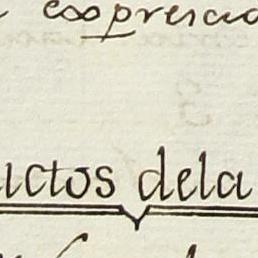 expresad
uctos dela